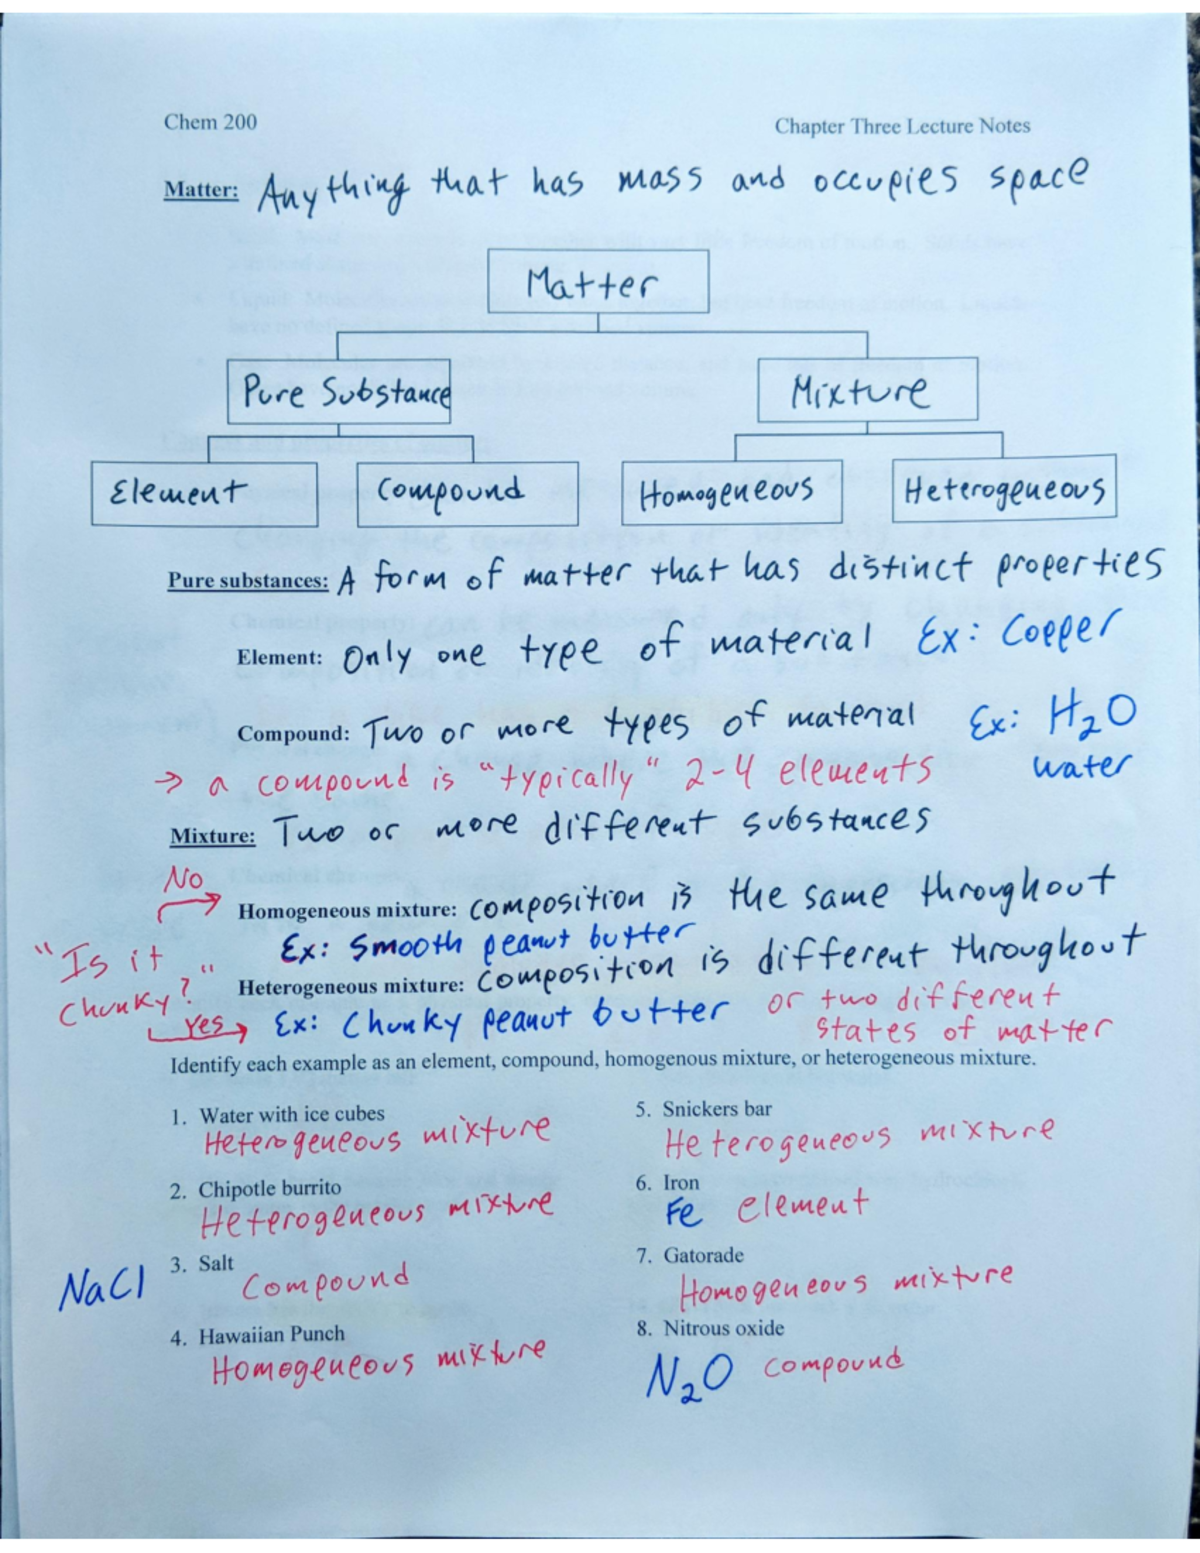 Chem 200
Chapter Three Lecture Notes
Matter: Anything that has mass and occupies space
Matter
Pure Substance
Mixture
Element
Compound
Homogeneous
Heterogeneous
Pure substances: A form of matter that has distinct properties
Element: Only one type of material Ex: Copper
Compound: Two or more types of material Ex: H₂O
water
→ a compound is "typically" 2-4 elements
Mixture: Two or more different substances
No
Homogeneous mixture: composition is the same throughout
Ex: Smooth peanut butter
"Is it
chunky?"
Heterogeneous mixture: composition is different throughout
Yes → Ex: Chunky peanut butter or two different
states of matter
Identify each example as an element, compound, homogenous mixture, or heterogeneous mixture.
1. Water with ice cubes
Heterogeneous mixture
2. Chipotle burrito
Heterogeneous mixture
3. Salt
NaCl Compound
4. Hawaiian Punch
Homogeneous mixture
5. Snickers bar
Heterogeneous mixture
6. Iron
Fe element
7. Gatorade
Homogeneous mixture
8. Nitrous oxide
N₂O compound